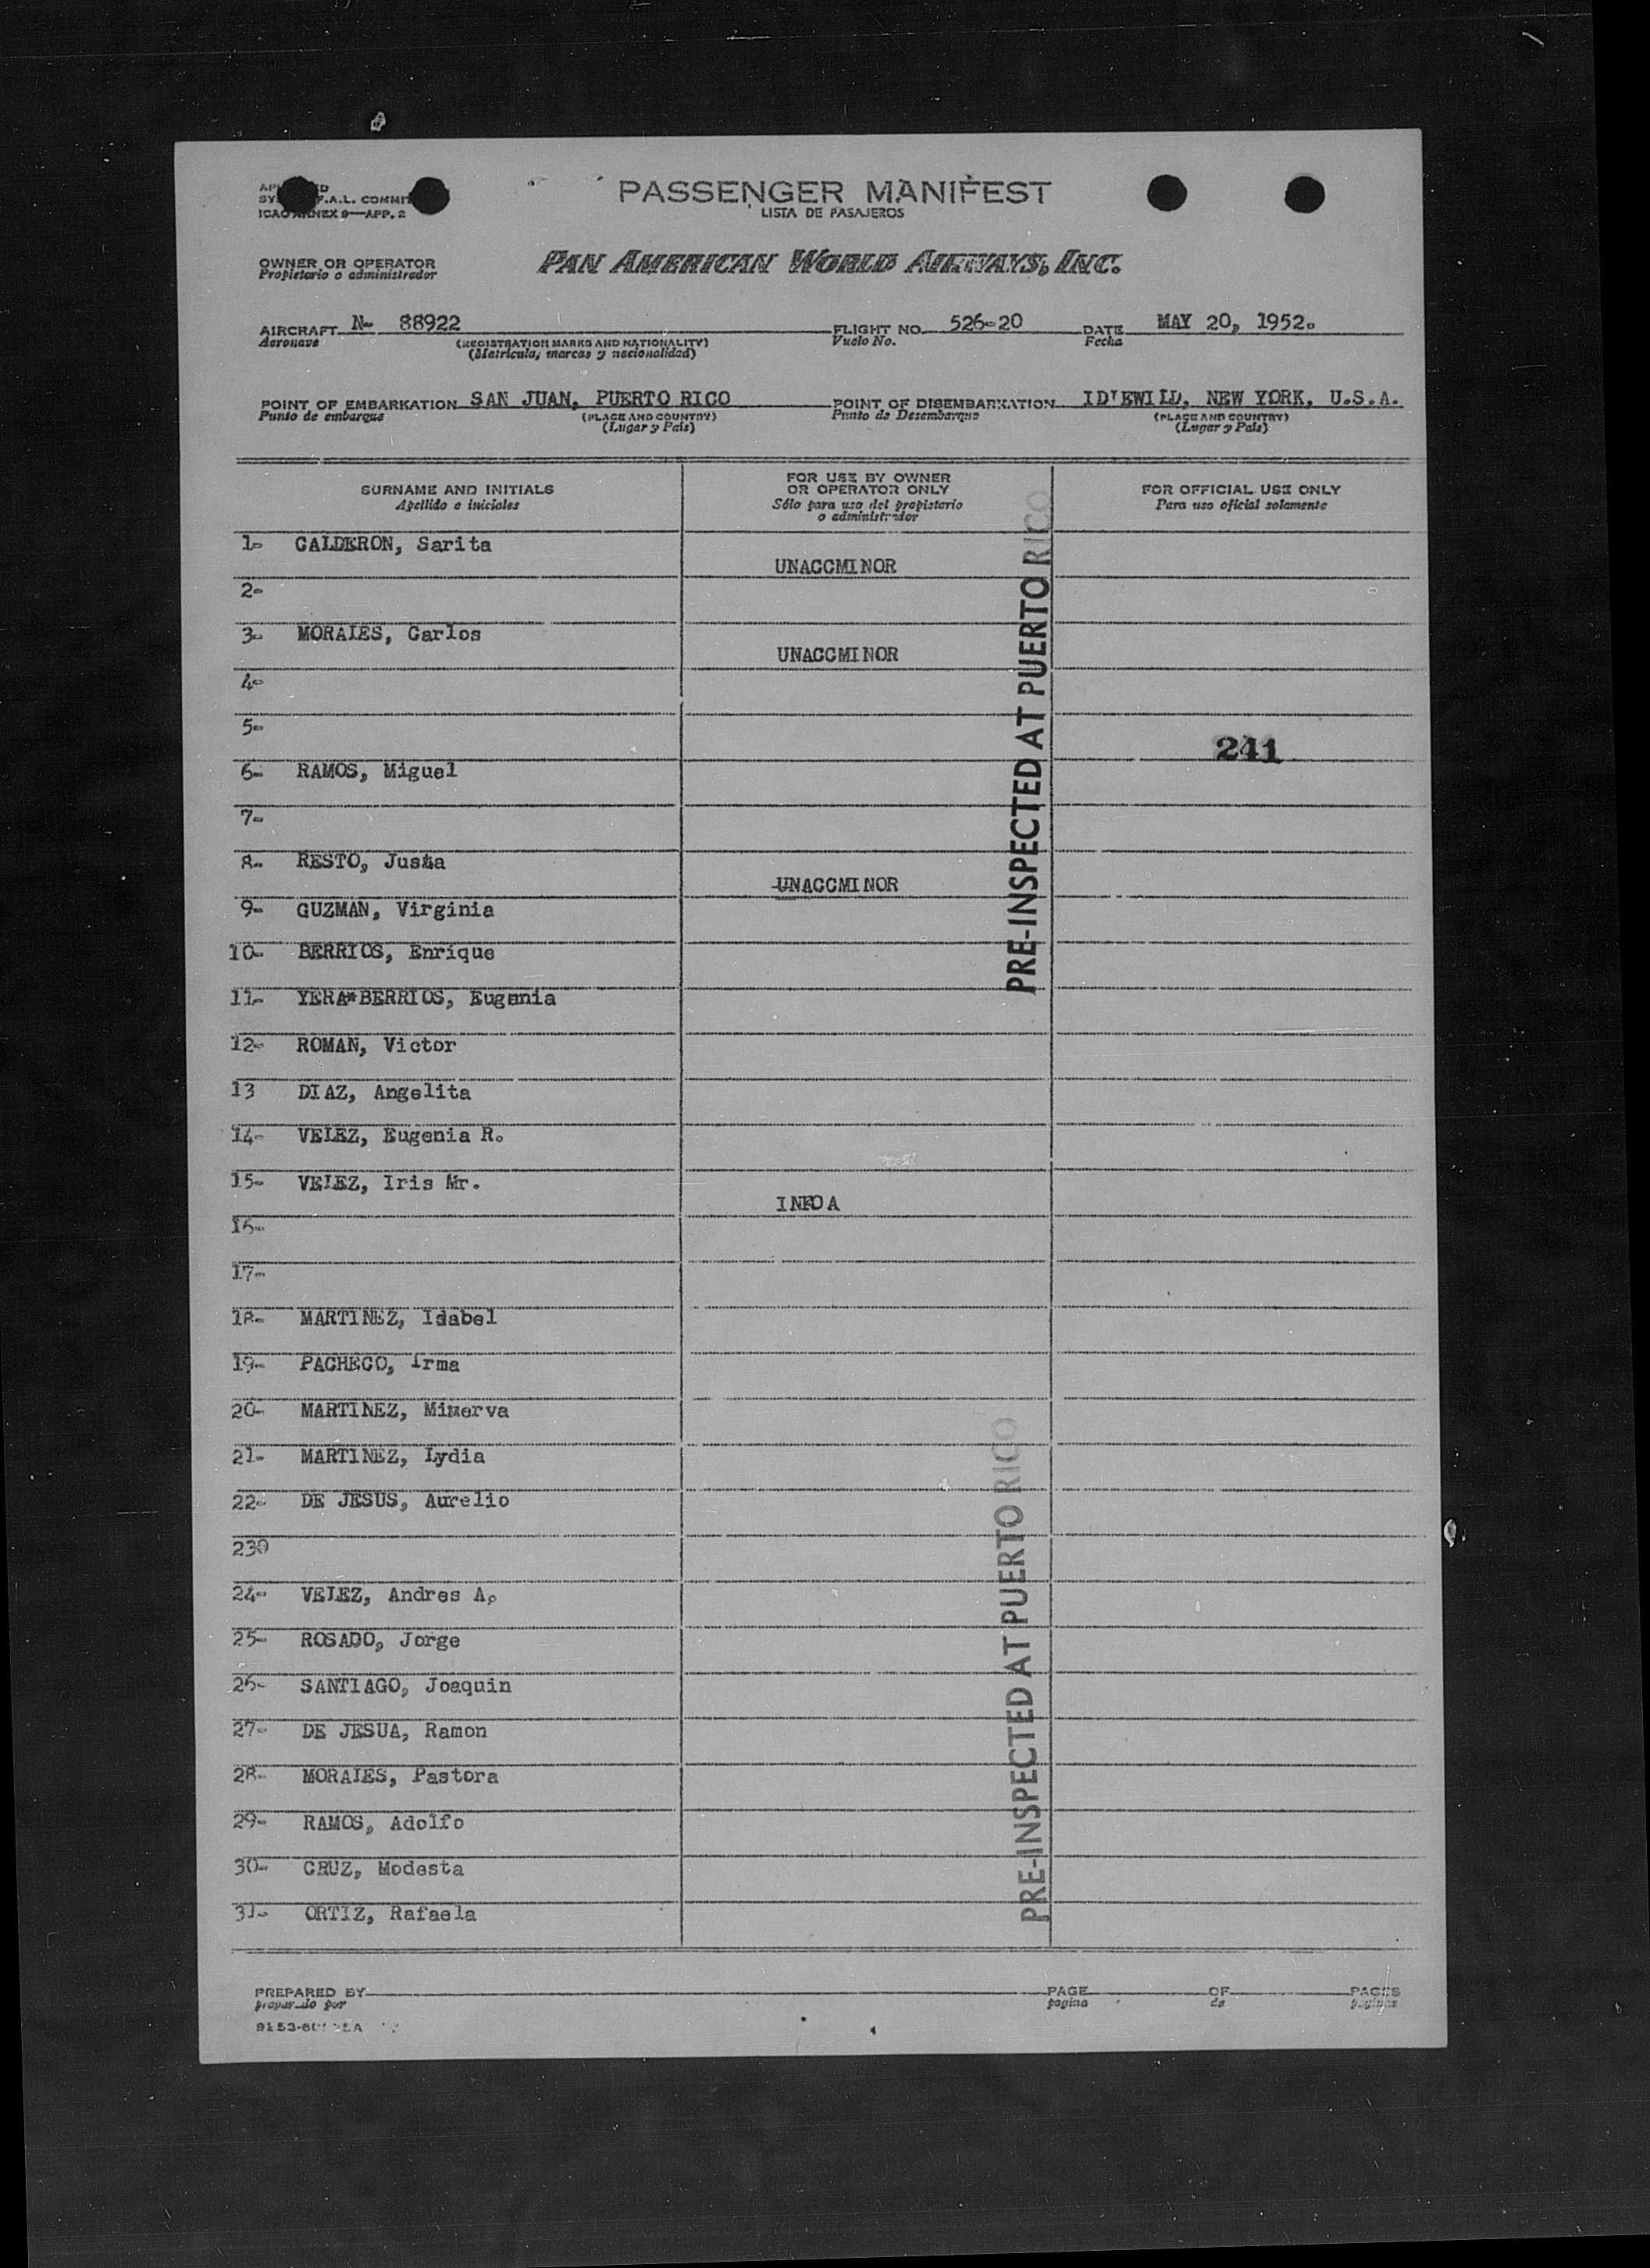 PASSENGER MANIFEST
LISTA DE PASAJEROS
F.A.L. COMMIT
ICAO ANNEX 9—APP. 2
OWNER OR OPERATOR
Propietario o administrador
PAN AMERICAN WORLD AIRWAYS, INC.
AIRCRAFT N- 88922 FLIGHT NO. 526-20 DATE MAY 20, 1952.
Aeronave (REGISTRATION MARKS AND NATIONALITY) Vuelo No. Fecha
(Matricula, marcas y nacionalidad)
POINT OF EMBARKATION SAN JUAN, PUERTO RICO POINT OF DISEMBARKATION ID'EWILD, NEW YORK, U.S.A.
Punto de embarque (PLACE AND COUNTRY) Punto de Desembarque (PLACE AND COUNTRY)
(Lugar y País) (Lugar y País)
SURNAME AND INITIALS
Apellido e iniciales
FOR USE BY OWNER
OR OPERATOR ONLY
Sólo para uso del propietario
o administrador
FOR OFFICIAL USE ONLY
Para uso oficial solamente
1- CALDERON, Sarita
UNACCMINOR
2-
3- MORALES, Carlos
UNACCMINOR
4-
5-
241
6- RAMOS, Miguel
7-
8- RESTO, Justa
-UNACCMINOR
9- GUZMAN, Virginia
10- BERRIOS, Enrique
11- YERA*BERRIOS, Eugenia
12- ROMAN, Victor
13 DIAZ, Angelita
14- VELEZ, Eugenia R.
15- VELEZ, Iris Mr.
16-
17-
18- MARTINEZ, Idabel
19- PACHECO, Irma
20- MARTINEZ, Minerva
21- MARTINEZ, Lydia
22- DE JESUS, Aurelio
230
24- VELEZ, Andres A.
25- ROSADO, Jorge
26- SANTIAGO, Joaquin
27- DE JESUA, Ramon
28- MORALES, Pastora
29- RAMOS, Adolfo
30- CRUZ, Modesta
31- ORTIZ, Rafaela
PRE-INSPECTED AT PUERTO RICO
PRE-INSPECTED AT PUERTO RICO
PREPARED BY PAGE OF PAGES
preparado por pagina de paginas